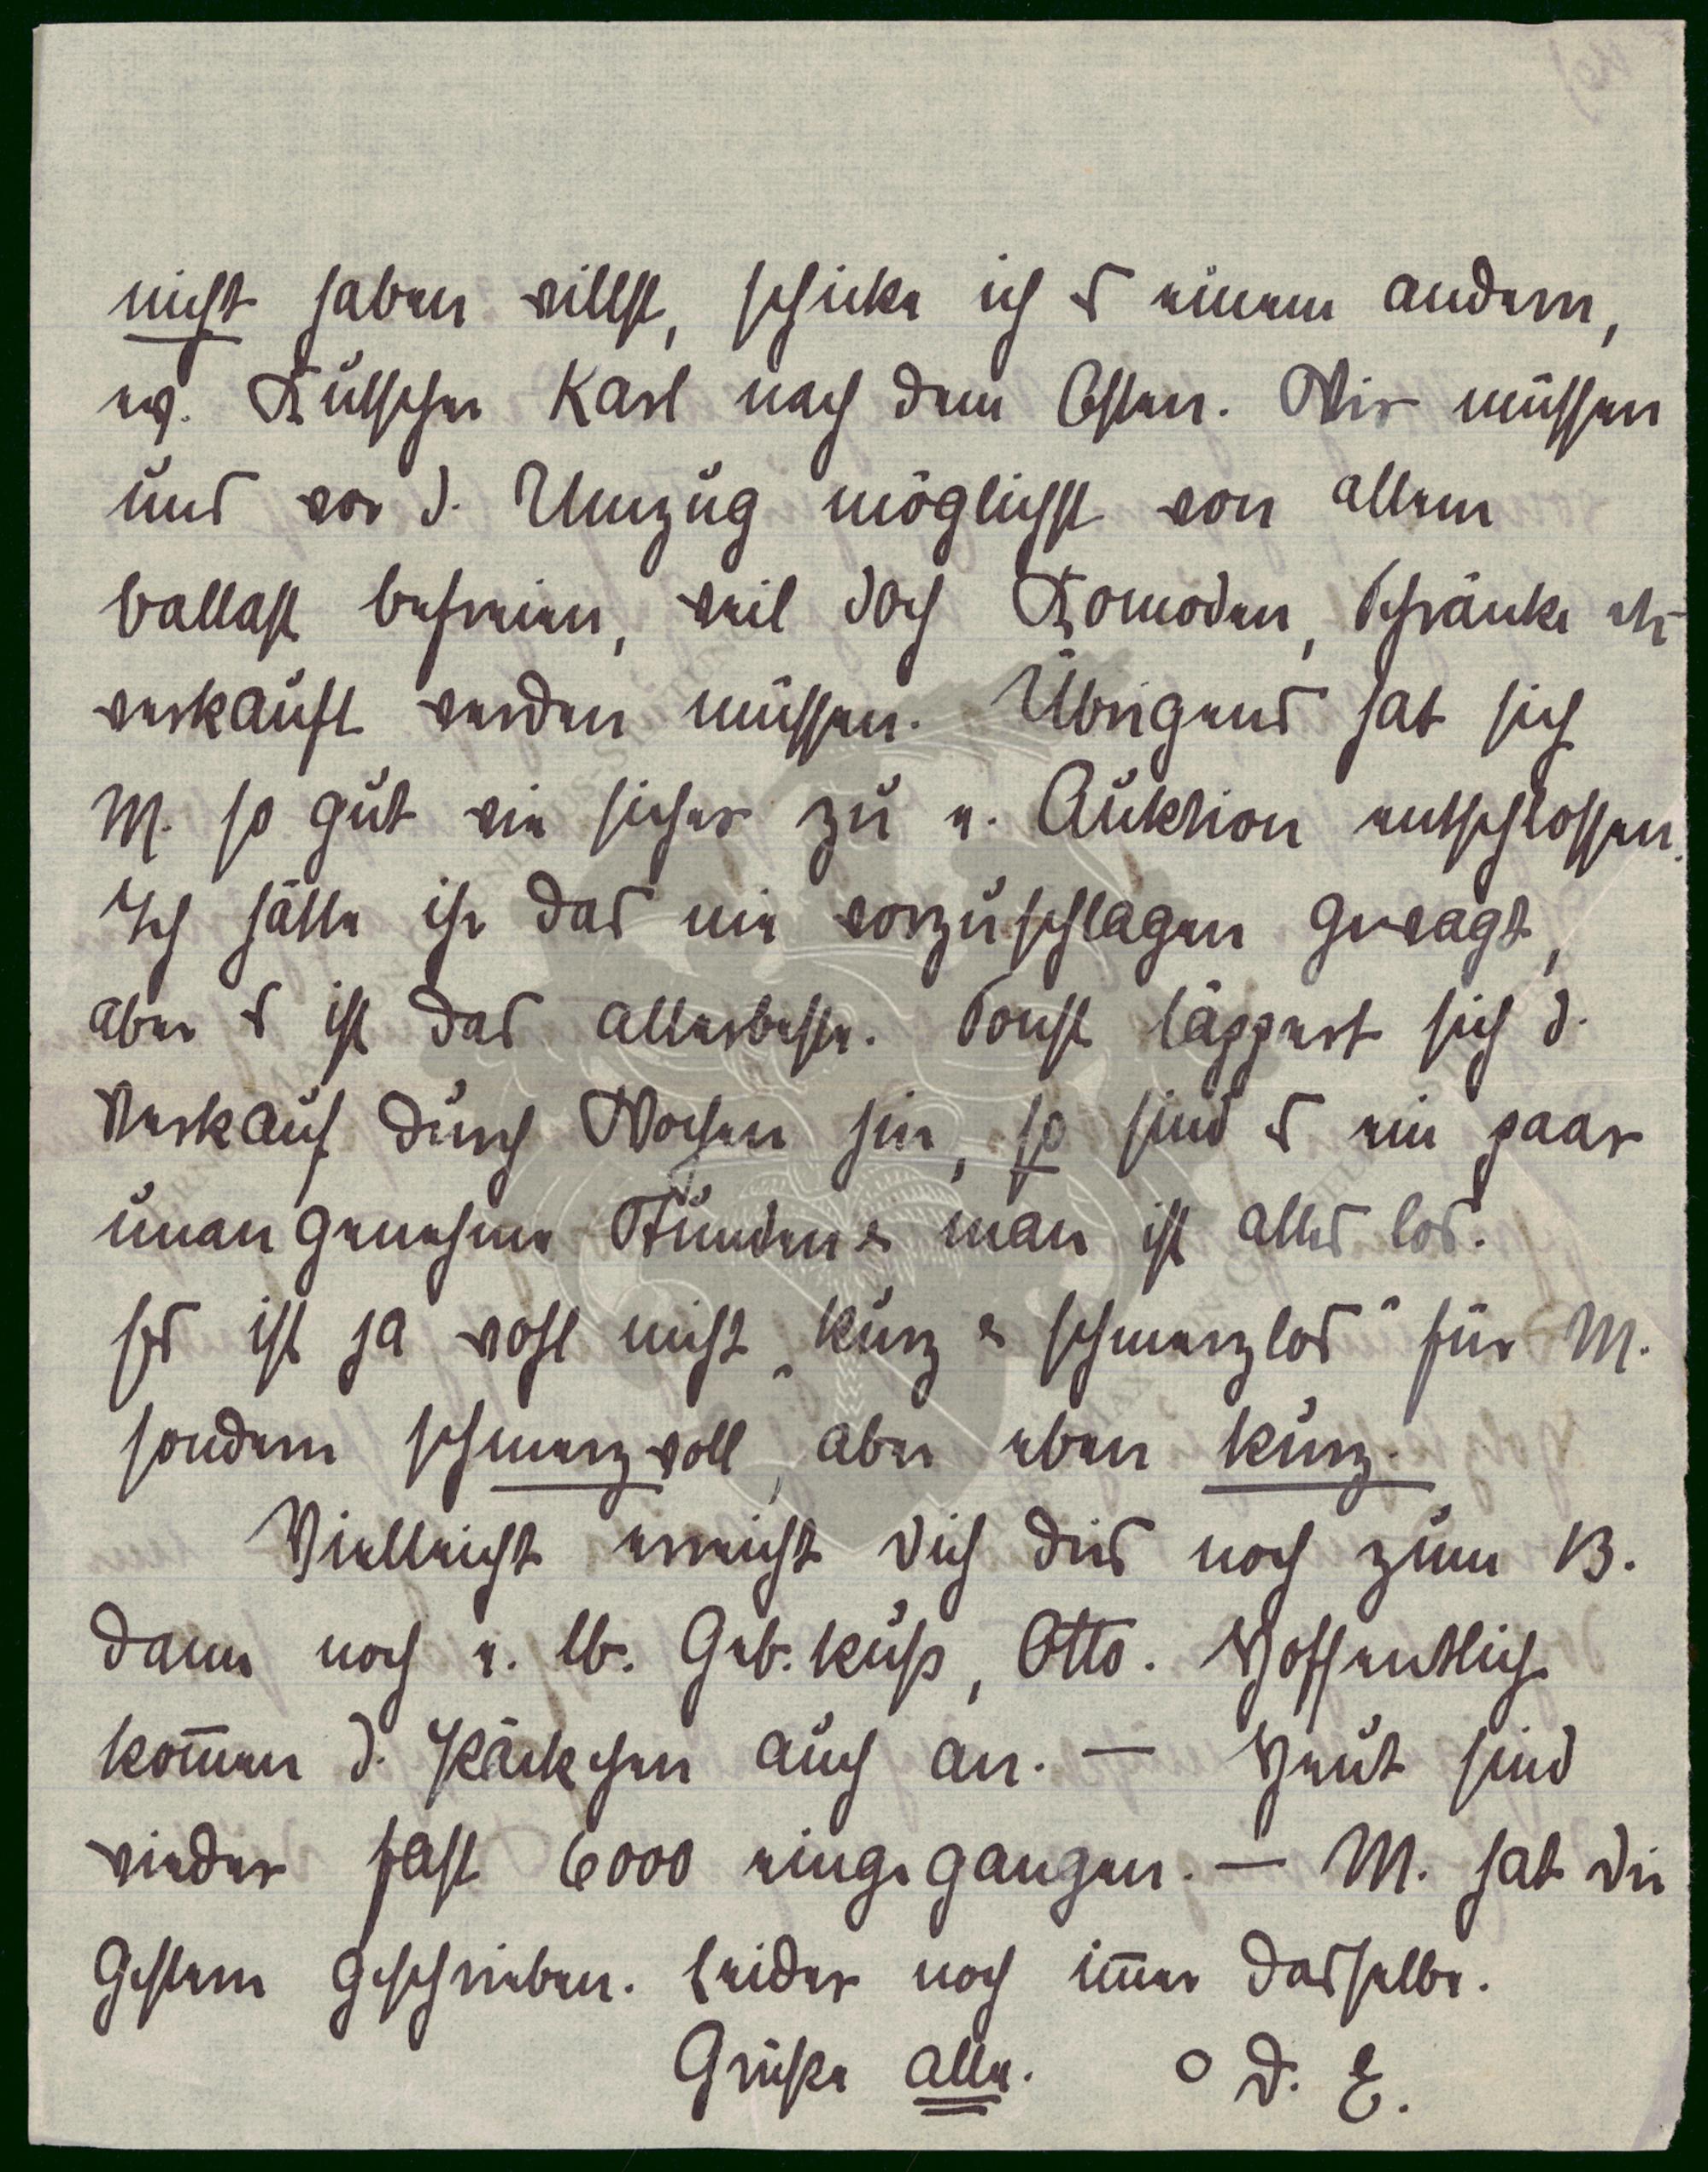 nicht haben willst, schicke ich es einem andern,
ev. Kutscher Karl nach dem Osten. Wir müssen
uns vor d. Umzug möglichst von allem
Ballast befreien, weil doch Komoden, Schränke etc
verkauft werden müssen. Übrigens hat sich
M. so gut wie sicher zu e. Auktion entschlossen.
Ich hätte ihr das nie vorzuschlagen gewagt,
aber es ist das allerbeste. Sonst läppert sich d.
Verkauf durch Wochen hin, so sind es ein paar
unangenehme Stunden & man ist alles los.
Es ist ja wohl nicht „kurz & schmerzlos" für M.
sondern schmerzvoll, aber eben kurz.
Vielleicht erreicht Dich dies noch zum 13.
dann noch e. lb. Geb.kuß, Otto. Hoffentlich
kom̅en d. Päckchen auch an. — Heut sind
wieder fast 6000 eingegangen. — M. hat Dir
gestern geschrieben. Leider noch im̅er dasselbe.
Grüße alle. o D. E.